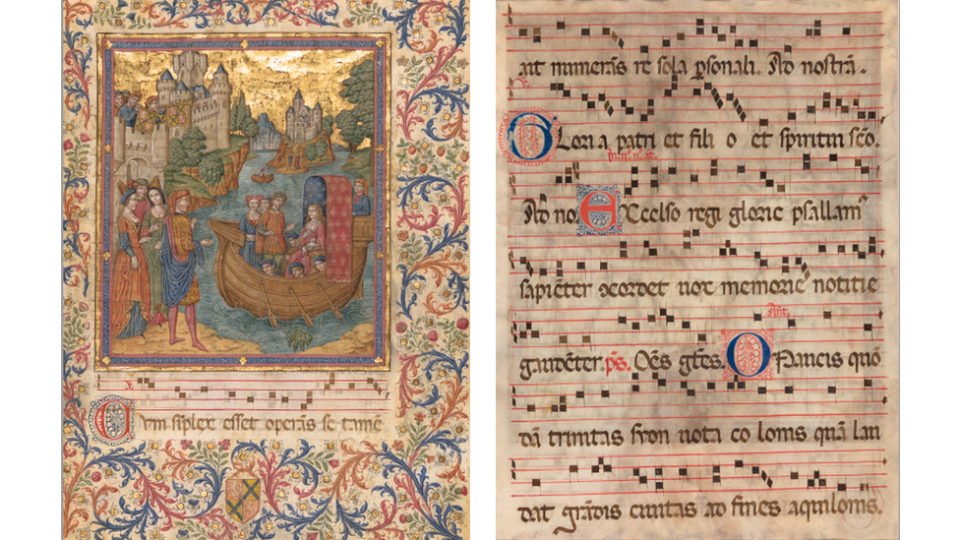 Cvm siplex esset operās se tamē
ait numerās re sola psonali. Ad nostrā.
GLoria patri et fili o et spiritui scō.
Ad no. EXcelso regi glorie psallam
sapiēter cordet uox memorie notitie
Añt.
gaudēter ps. Oēs gētes. quō
dā trinitas syon nota co lonis quā lau
dat grādis ciuitas ad fines aquilonis.